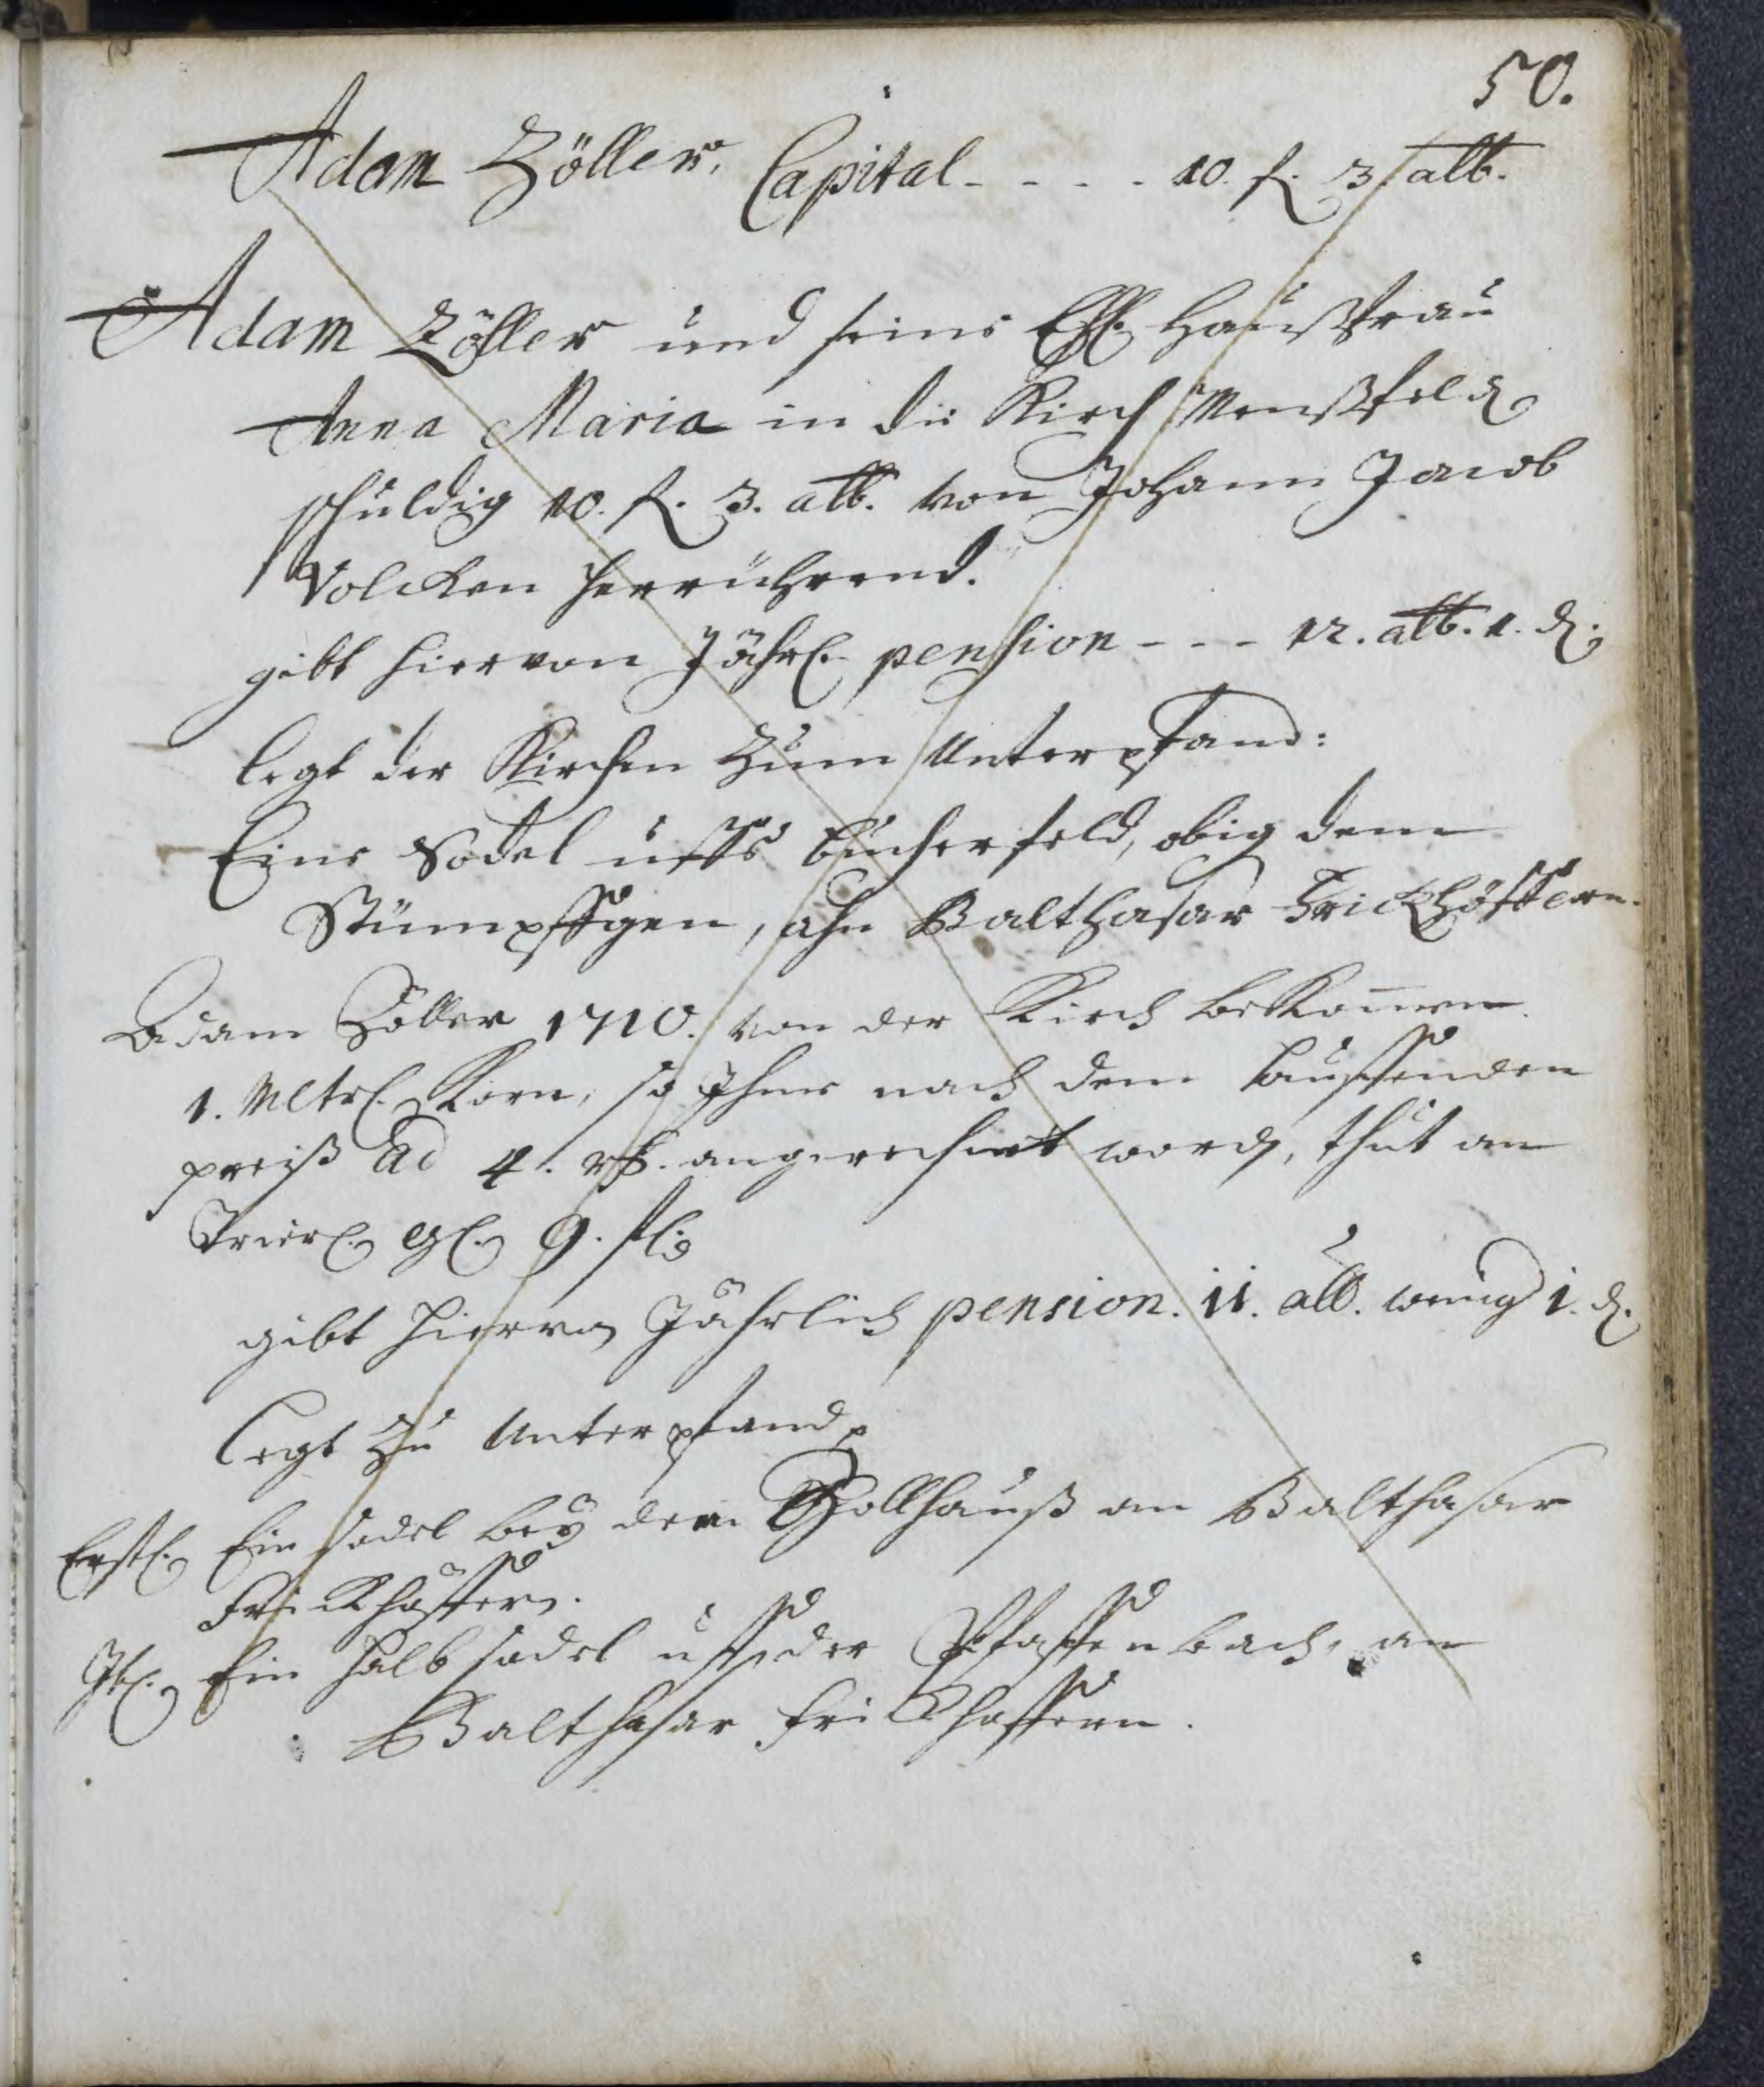 50.
Adam Zöller, Capital - - - - 10. f. 3. alb.
Adam Zöller und seine Ehl. Haußfrau
Anna Maria in die Kirch Menßfeld
schuldig 10. f. 3. alb. von Johann Jacob
Volcken herrührend.
gibt hiervon Jährl. pension - - - 12. alb. 1. d.
legt der Kirchen Zum Unterpfand:
Eine Sodel uffs bucherfeld, obig dem
Stümpffgen, ahn Balthasar Frickhöffern.
Adam Zöller 1710. von der Kirch bekommen
1. Mltr. Korn, so Ihme nach dem lauffenden
preiß ad 4. angerechnet word, thut an
Trierl. 9. fl.
gibt hiervon Jährlich pension. 11. alb. wenig 1. d.
legt Zu Unterpfand
Erstl. Ein sodel bey dem Zollhauß an Balthasar
Frickhöffern.
It. Ein halb sodel uff der Pfaffenbach, an
Balthasar Frickhoffern.